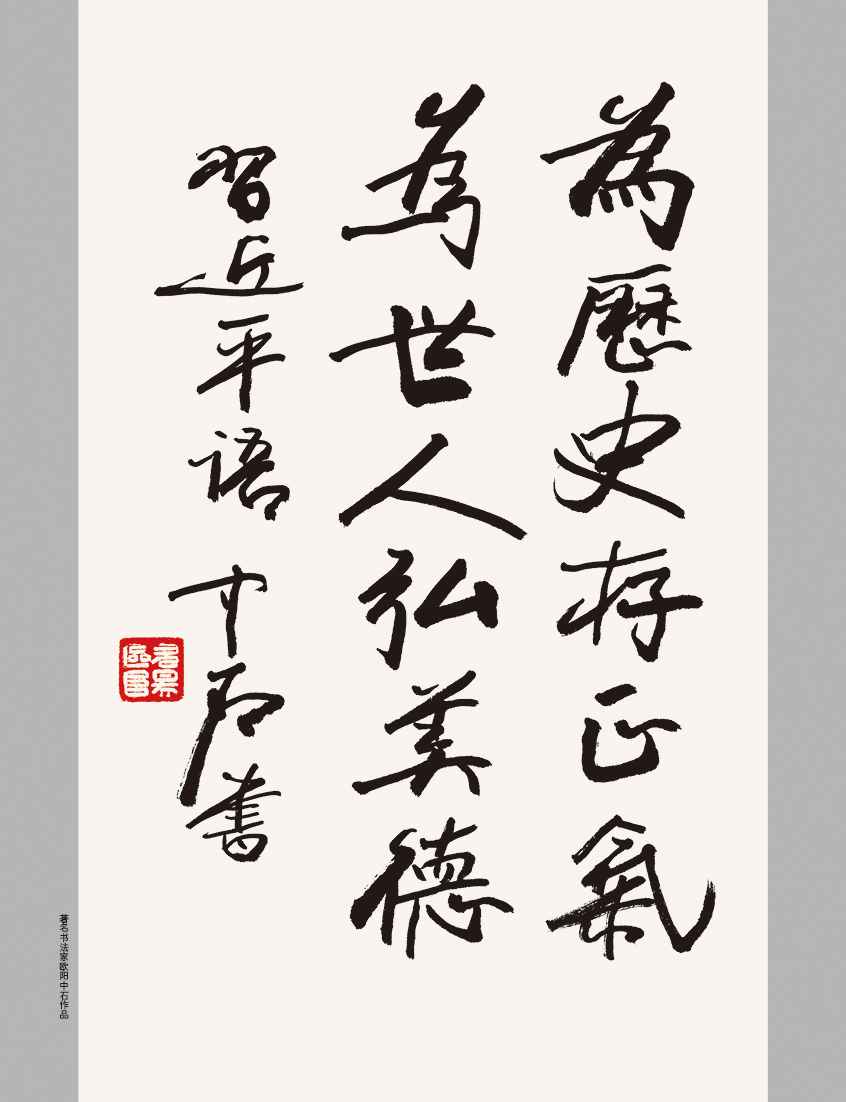 為歷史存正氣
為世人弘美德
習近平语
中石書
著名书法家欧阳中石作品